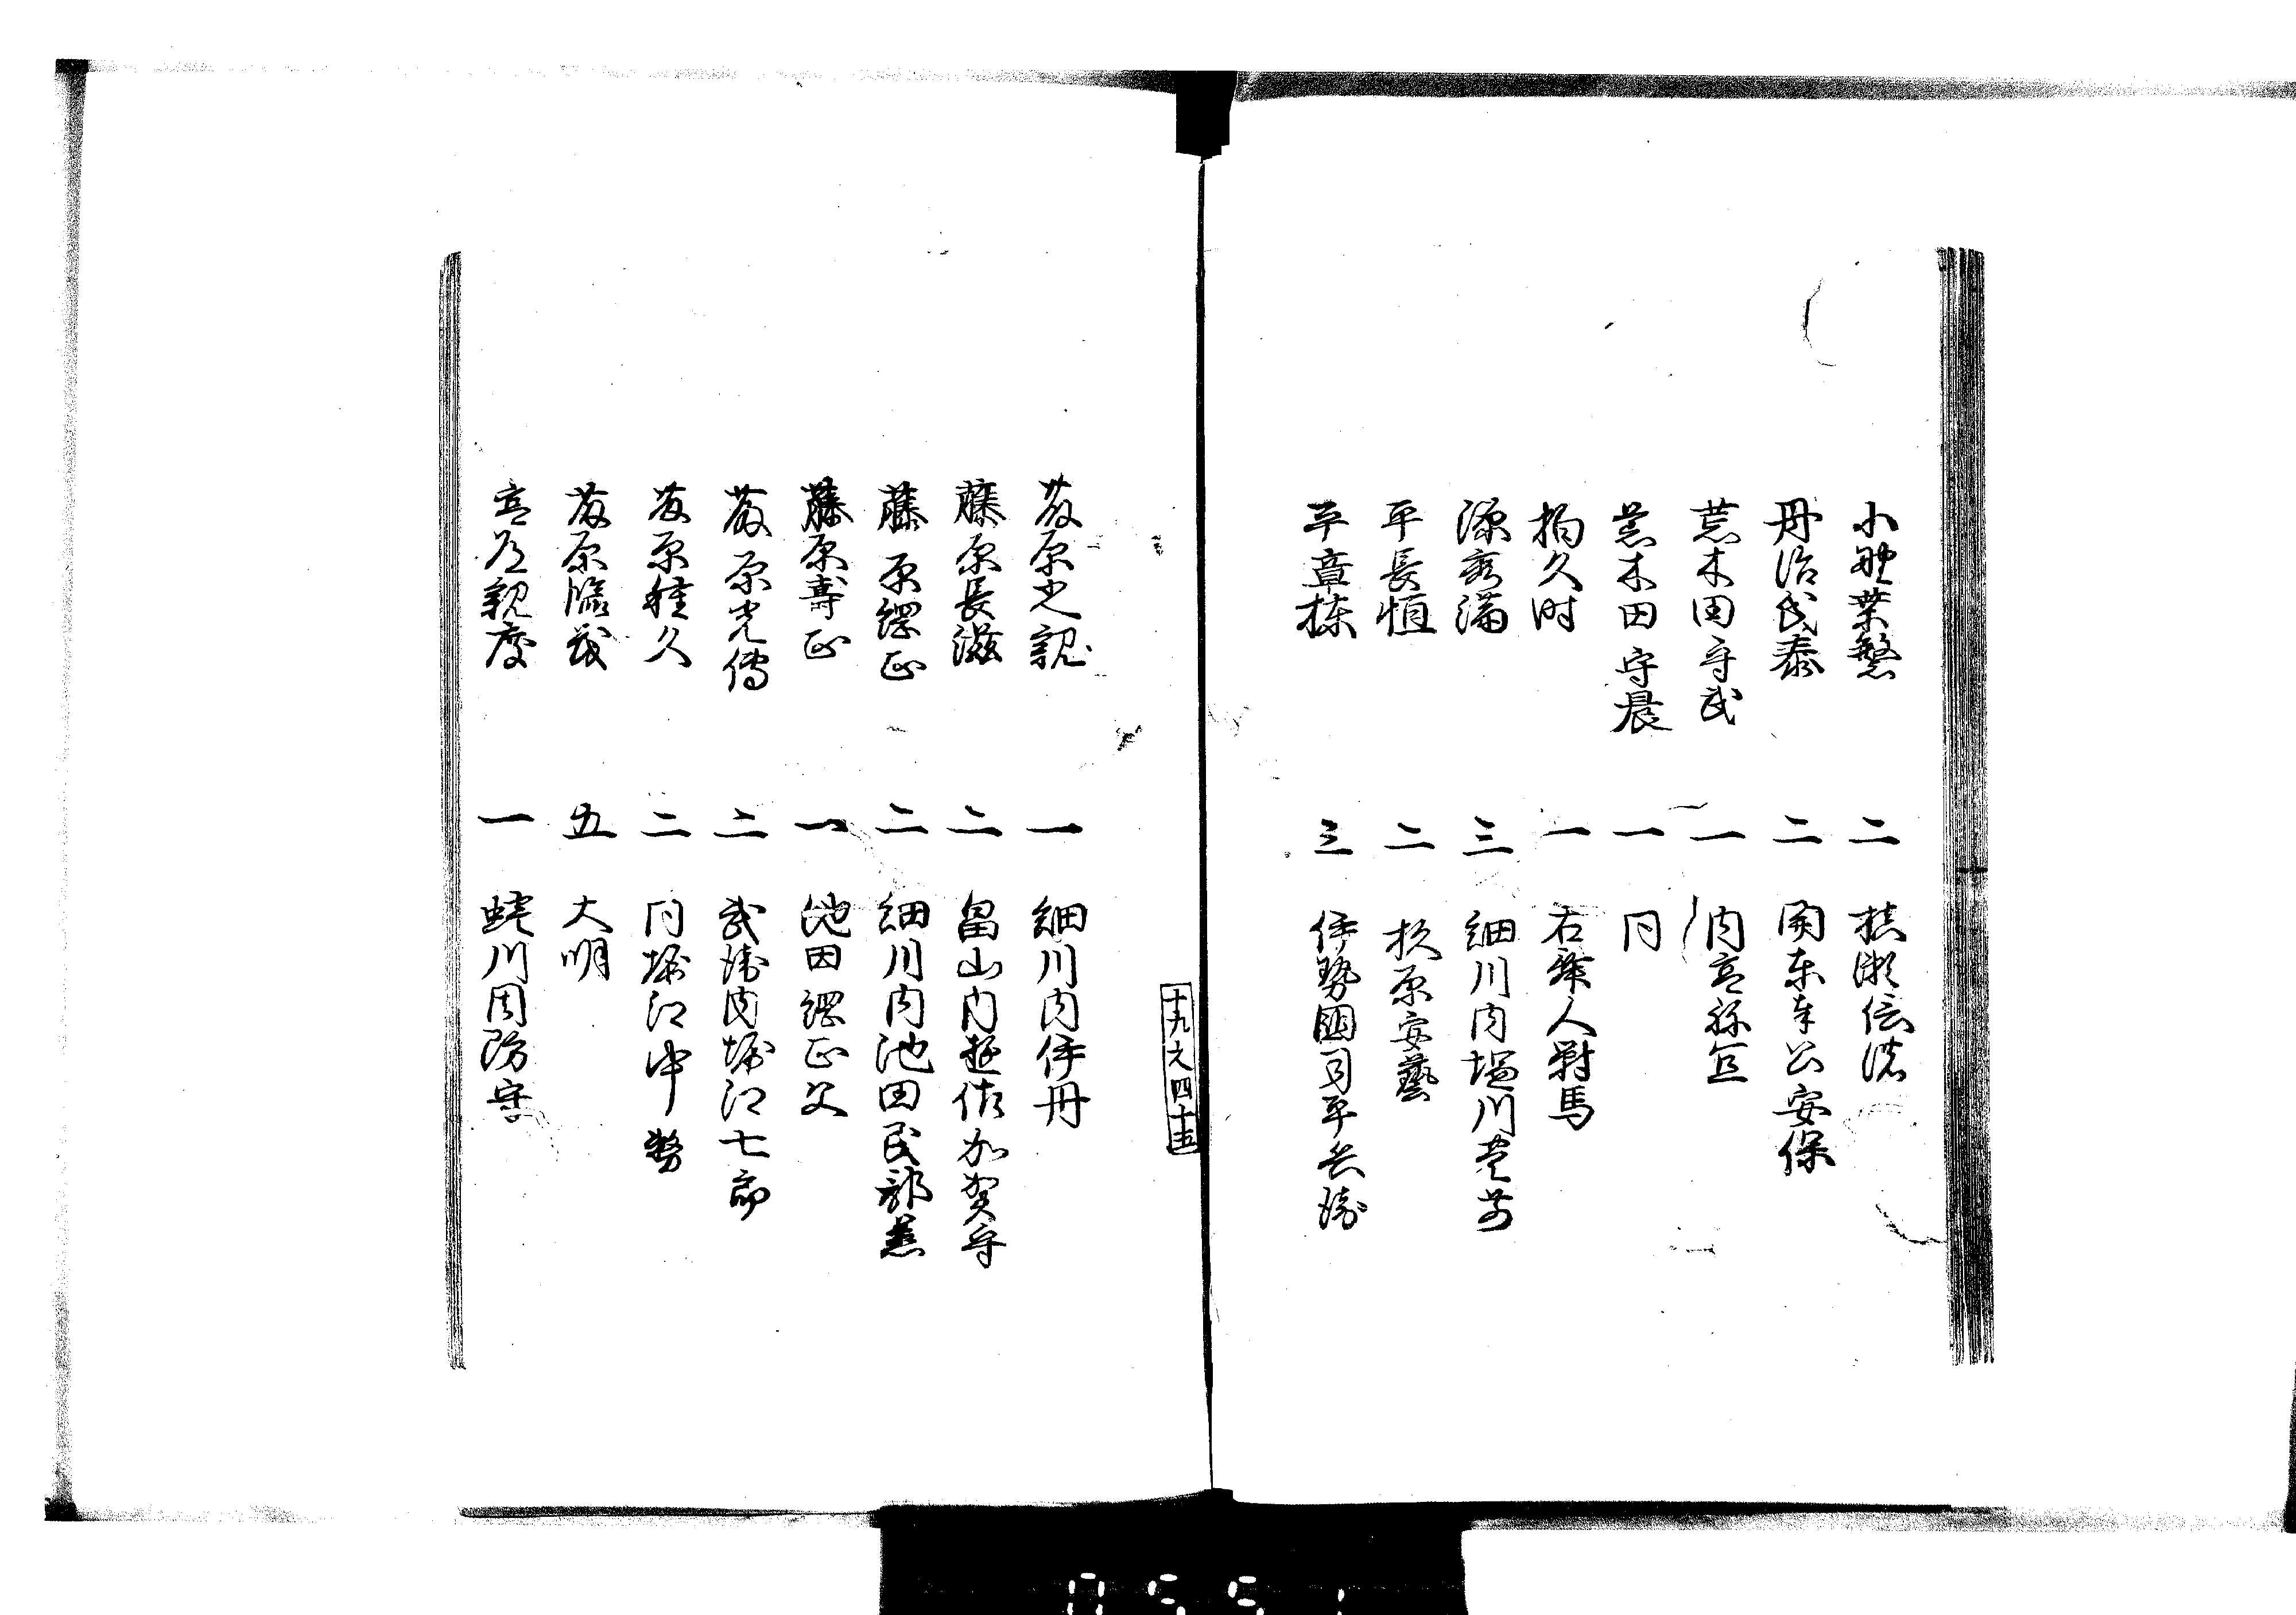 小野業繁 二 扶瀬信濃
丹治氏泰 二 関東奉公安保
荒木田守武 一 内宮祢宜
荒木田守晨 一 同
柏久時 一 右舞人対馬
源秀満 三 細川内塩川豊前
平長恒 二 杦原安藝
平章棟 三 伊勢國司平兵衛
藤原之親 一 細川内伊丹
藤原長滋 二 畠山内遊佐加賀守
藤原綱正 二 細川内池田民部丞
藤原壽正 一 池田綱正父
藤原光傳 二 武衛内堀江七郎
藤原種久 二 同堀江中務
藤原隆成 五 大明
宮道親度 一 蜷川周防守
十九ノ六四十五
0551